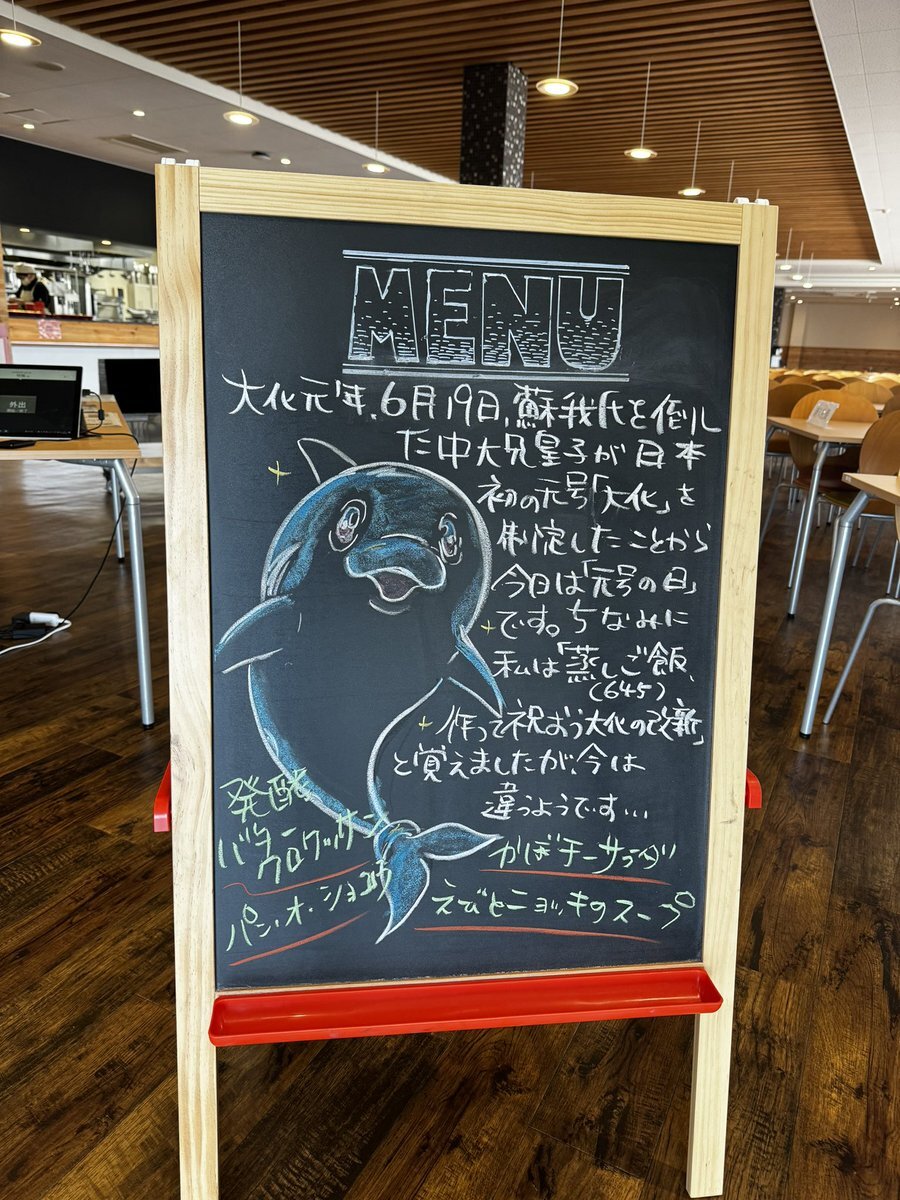 MENU
大化元年、6月19日、蘇我氏を倒し
た中大兄皇子が日本
初の元号「大化」を
制定したことから
今日は「元号の日」
です。ちなみに
私は「蒸しご飯、
(645)
作って祝おう大化の改新」
と覚えましたが、今は
違うようです…
発酵
バター
クロワッサン
パン・オ・ショコラ
かぼチーサラダ
えびとニョッキのスープ
外出